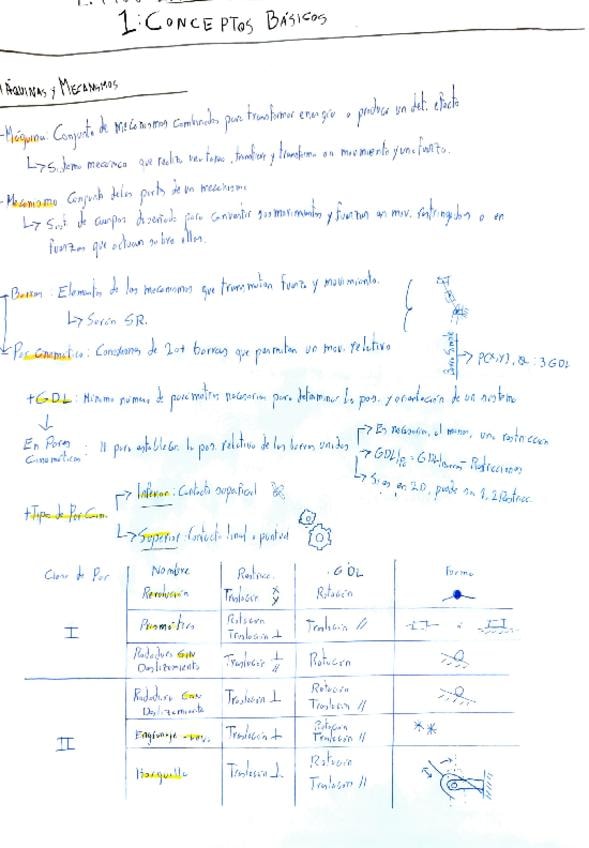 1: CONCEPTOS BÁSICOS
MÁQUINAS Y MECANISMOS
- Máquina: Conjunto de mecanismos combinados para transformar energía o producir un det. efecto
↳ Sistema mecánico que realiza una tarea, transfiere y transforma un movimiento y una fuerza.
- Mecanismo Conjunto de las parts de un mecanismo
↳ Sist. de cuerpos diseñado para convertir sus movimientos y fuerzas en mov. restringidos o en
fuerzas que actuan sobre ellos.
Barras: Elementos de los mecanismos que transmiten fuerza y movimiento.
↳ Serán SR.
Par Cinemático: Conexiones de 2 o + barras que permiten un mov. relativo
→ P(x,y), θ : 3 GDL
+ GDL: Mínimo número de parametros necesarios para determinar la pos. y orientación de un sistema
En Pares
Cinemáticos: // para establecer la pos. relativa de las barras unidas
→ Es necesaria, al menos, una restricción
→ GDL = GDL - Restricciones
→ Si es en 2D, puede ser 1, 2 Restricc.
+ Tipo de Par Cin.
→ Inferior: Contacto superficial
↳ Superior: Contacto lineal o puntual
Clase de Par Nombre Restricc. GDL Forma
I
Revolución Traslación x y Rotación
Prismático Rotación Traslación ⊥ Traslación //
Rodadura SIN Deslizamiento Traslación ⊥ // Rotación
II
Rodadura CON Deslizamiento Traslación ⊥ Rotación Traslación //
Engranaje Traslación ⊥ Rotación Traslación //
Horquilla Traslación ⊥ Rotación Traslación //